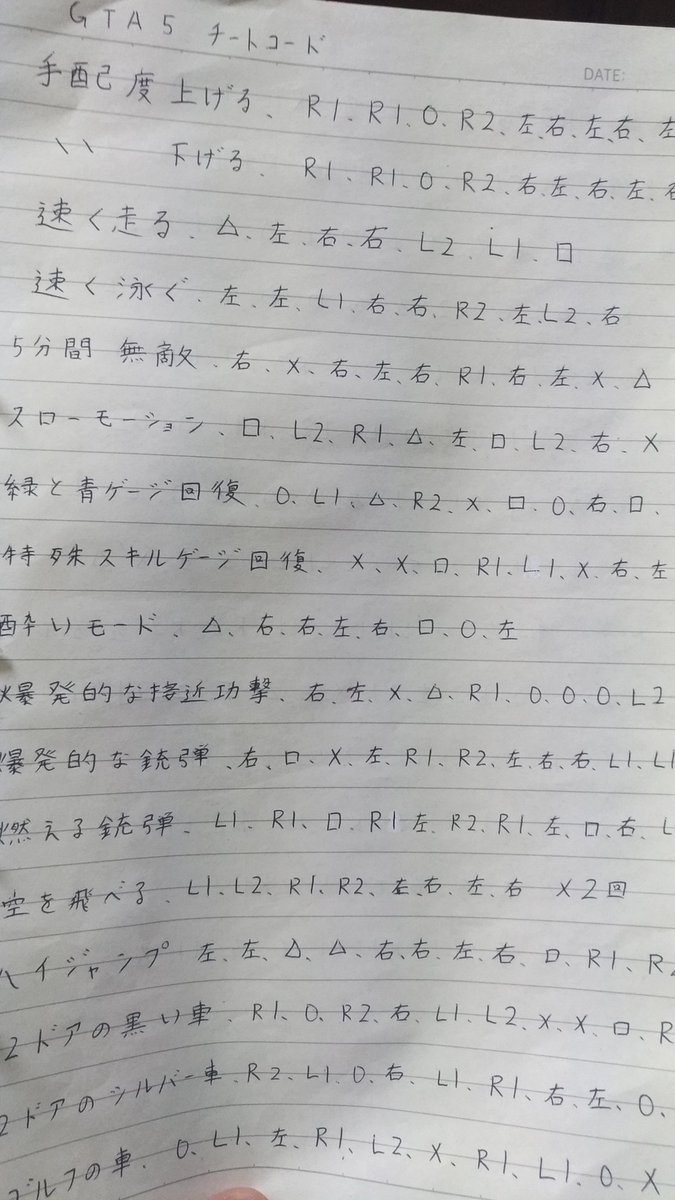 DATE:
GTA5 チートコード
手配度 上げる、R1、R1、O、R2、左、右、左、右、左
〃 下げる、R1、R1、O、R2、右、左、右、左、右
速く走る、△、左、右、右、L2、L1、□
速く泳ぐ、左、左、L1、右、右、R2、左、L2、右
5分間 無敵、右、X、右、左、右、R1、右、左、X、△
スローモーション、□、L2、R1、△、左、□、L2、右、X
緑と青ゲージ回復、O、L1、△、R2、X、□、O、右、□、
特殊スキルゲージ回復、X、X、□、R1、L1、X、右、左
酔いモード、△、右、右、左、右、□、O、左
爆発的な接近功撃、右、左、X、△、R1、O、O、O、L2
爆発的な銃弾、右、□、X、左、R1、R2、左、右、右、L1、L1
燃える銃弾、L1、R1、□、R1 左、R2、R1、左、□、右、L
空を飛べる、L1、L2、R1、R2、左、右、左、右 X2回
ハイジャンプ 左、左、△、△、右、右、左、右、□、R1、R2
2ドアの黒い車、R1、O、R2、右、L1、L2、X、X、□、R
2ドアのシルバー車、R2、L1、O、右、L1、R1、右、左、O、
ゴルフの車、O、L1、左、R1、L2、X、R1、L1、O、X